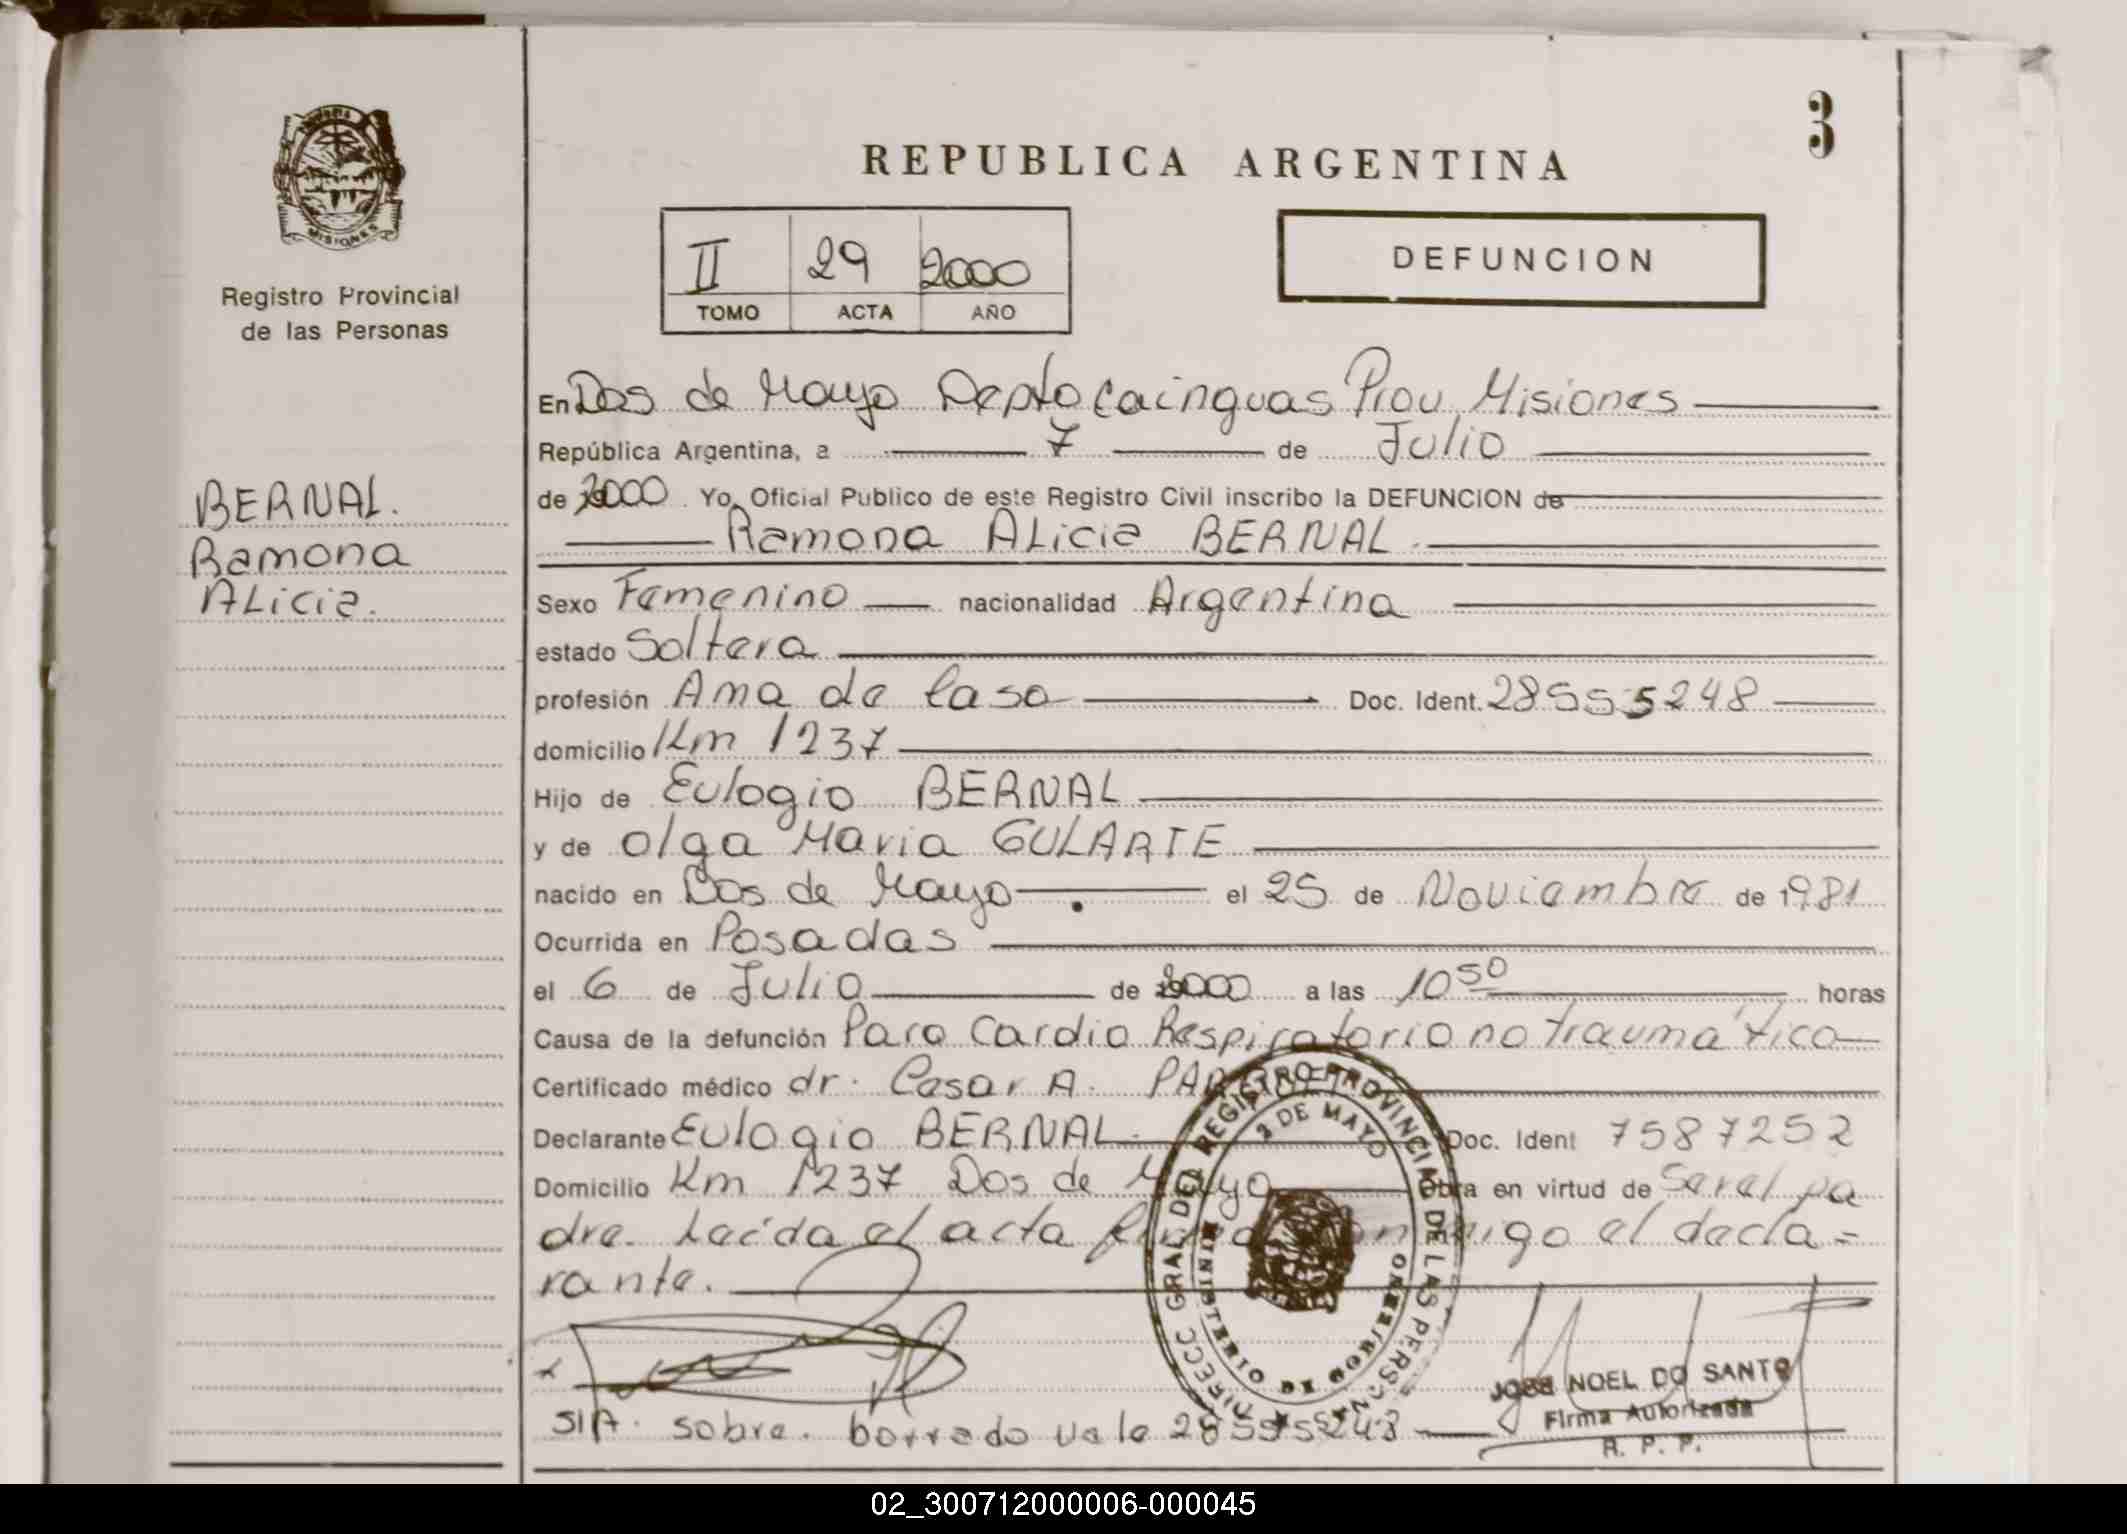 MISIONES
Registro Provincial
de las Personas
BERNAL.
Ramona
ALicia.
3
REPUBLICA ARGENTINA
II 29 2000
TOMO ACTA AÑO
DEFUNCION
En Dos de Mayo Depto Cainguas Prov. Misiones
República Argentina, a 7 de Julio
de 2000. Yo, Oficial Publico de este Registro Civil inscribo la DEFUNCION de
Ramona ALicia BERNAL.
Sexo Femenino nacionalidad Argentina
estado Soltera
profesión Ama de Casa Doc. Ident. 28555248
domicilio Km 1237
Hijo de Eulogio BERNAL
y de Olga Maria GULARTE
nacido en Dos de Mayo el 25 de Noviembre de 1981
Ocurrida en Posadas
el 6 de Julio de 2000 a las 10 50 horas
Causa de la defunción Paro Cardio Respiratorio no traumático
Certificado médico dr. Cesar A.
Declarante Eulogio BERNAL. Doc. Ident 7587252
Domicilio Km 1237 Dos de Mayo Obra en virtud de Ser el pa
dre. Leída el acta firma conmigo el decla=
rante.
DIRECC GRAL DEL REGISTRO PROVINCIAL DE LAS PERSONAS
2 DE MAYO
MINISTERIO DE GOBIERNO
JOSE NOEL DO SANTO
Firma Autorizada
R. P. P.
S/A. sobre. borrado vale 28555248
02_300712000006-000045